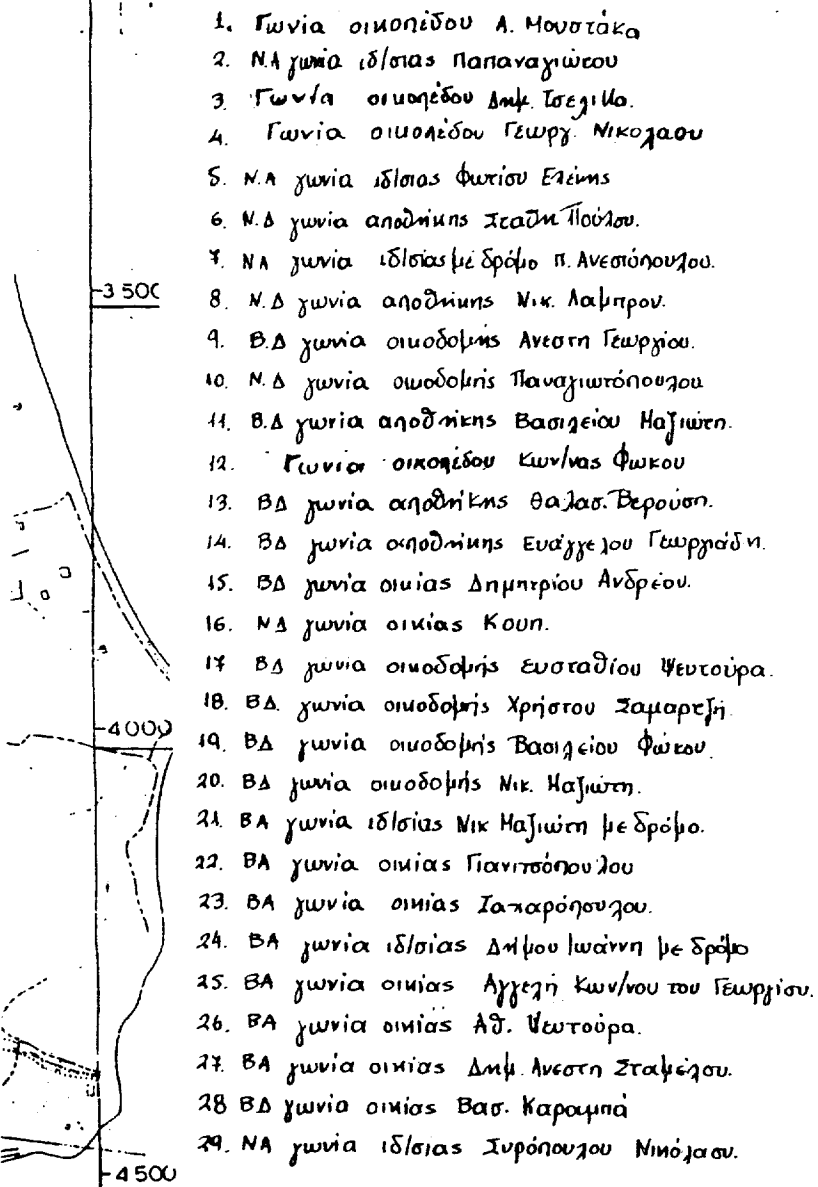 1. Γωνία οικοπέδου Α. Μουστάκα
2. Ν.Α γωνία ιδ/σιας Παπαναγιώτου
3. Γωνία οικοπέδου Δημ. Τσελίκα.
4. Γωνία οικοπέδου Γεωργ. Νικολαου
5. Ν.Α γωνία ιδ/σιας Φωτίου Ελένης
6. Ν.Δ γωνία αποθήκης Σταθη Πούλου.
7. ΝΑ γωνία ιδ/σίας με δρόμο Π. Ανεστόπουλου.
3 500
8. Ν.Δ γωνία αποθήκης Νικ. Λαμπρου.
9. Β.Δ γωνία οικοδομής Ανεστη Γεωργίου.
10. Ν.Δ γωνία οικοδομής Παναγιωτόπουλου
11. Β.Δ γωνία αποθήκης Βασιλείου Μαζιώτη.
12. Γωνία οικοπέδου Κων/νας Φωκου
13. ΒΔ γωνία αποθήκης Θαλασ. Βερούση.
14. ΒΔ γωνία αποθήκης Ευάγγελου Γεωργιάδη.
15. ΒΔ γωνία οικίας Δημητρίου Ανδρέου.
16. ΝΔ γωνία οικίας Κουπ.
17 ΒΔ γωνία οικοδομής Ευσταθίου Ψευτούρα.
18. ΒΔ. γωνία οικοδομής Χρήστου Σαμαρτζή
4000
19. ΒΔ γωνία οικοδομής Βασιλείου Φώκου
20. ΒΔ γωνία οικοδομής Νικ. Μαζιώτη.
21. ΒΑ γωνία ιδ/σίας Νικ Μαζιώτη με δρόμο.
22. ΒΑ γωνία οικίας Γιανιτσόπουλου
23. ΒΑ γωνία οικίας Σακαρόπουλου.
24. ΒΑ γωνία ιδ/σίας Δήμου Ιωάννη με δρόμο
25. ΒΑ γωνία οικίας Αγγελή Κων/νου του Γεωργίου.
26. ΒΑ γωνία οικίας Αθ. Ψευτούρα.
27. ΒΑ γωνία οικίας Δημ. Ανεστη Σταμέλου.
28 ΒΔ γωνία οικίας Βασ. Καραμπά
29. ΝΑ γωνία ιδ/σιας Συρόπουλου Νικόλαου.
4 500